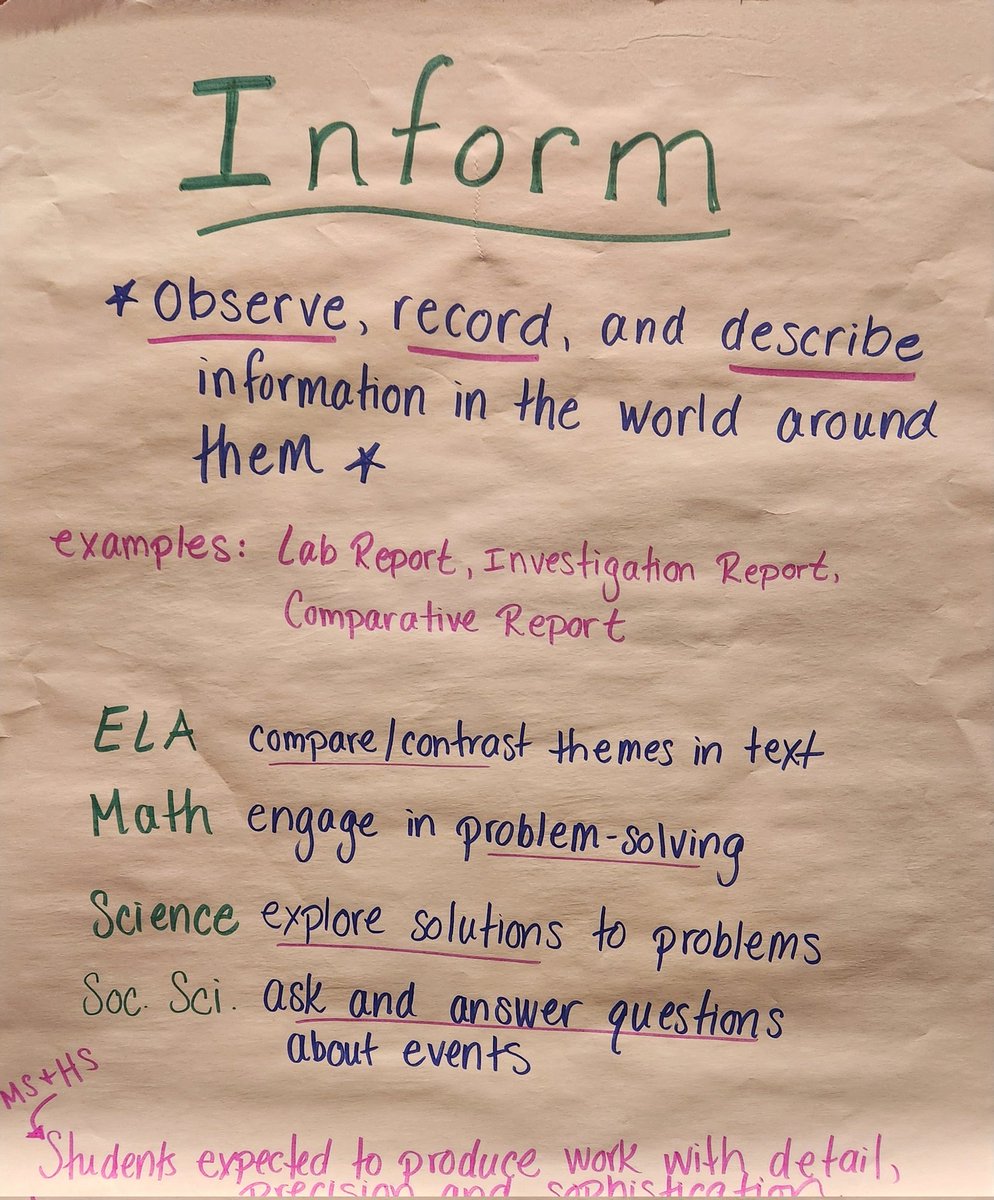 Inform
* Observe, record, and describe
information in the world around
them *
examples: Lab Report, Investigation Report,
Comparative Report
ELA compare/contrast themes in text
Math engage in problem-solving
Science explore solutions to problems
Soc. Sci. ask and answer questions
about events
MS+HS
Students expected to produce work with detail,
precision and sophistication